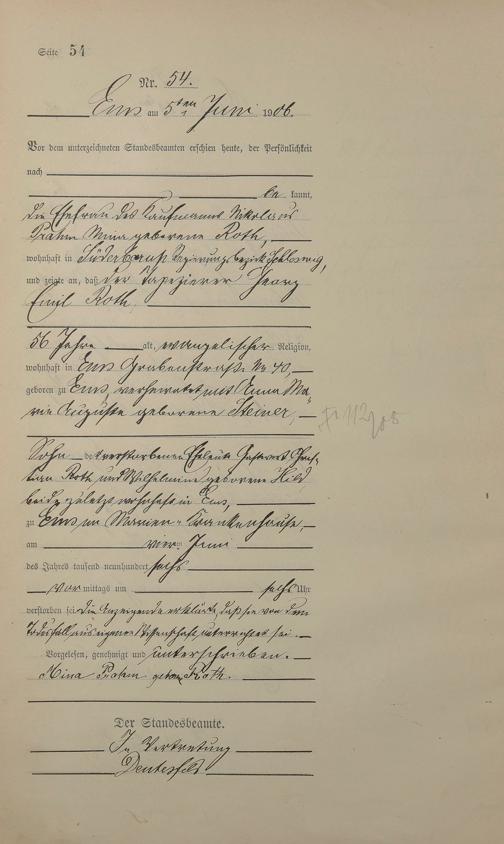 Seite 54
Nr. 54.
Ems am 5ten Juni 1906.
Vor dem unterzeichneten Standesbeamten erschien heute, der Persönlichkeit
nach
be kannt,
die Ehefrau des Kaufmanns Nikolaus
Mina geborene Roth,
wohnhaft in Süderbrarup Regierungsbezirk Schleswig,
und zeigte an, daß der Tapezierer Georg
Emil Roth,
56 Jahre alt, evangelischer Religion,
wohnhaft in Ems Grabenstraße No 40,
geboren zu Ems, verheiratet mit Anna Ma-
rie Auguste geborene Steiner,
Sohn der verstorbenen Eheleute Gastwirt Chris-
tian Roth und Wilhelmine geborene Hild,
beide zuletzt wohnhaft in Ems,
zu Ems im Marien-Krankenhause,
am vier Juni
des Jahres tausend neunhundert sechs
vor mittags um sechs Uhr
verstorben sei. Die Anzeigende erklärte, daß sie von dem
Todesfall aus eigener Wissenschaft unterrichtet sei.
Vorgelesen, genehmigt und unterschrieben.
Mina geb. Roth.
Der Standesbeamte.
In Vertretung